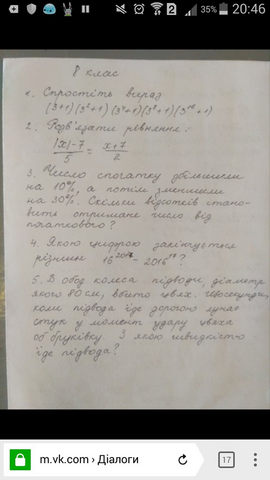 35% 20:46
8 клас
1. Спростіть вираз
(3+1)(3²+1)(3⁴+1)(3⁸+1)(3¹⁶+1)
2. Розв'язати рівняння:
|x|-7 / 5 = x+7 / 2
3. Число спочатку збільшили
на 10%, а потім зменшили
на 30%. Скільки відсотків стано-
вить отримане число від
початкового?
4. Якою цифрою закінчується
різниця 16 - 2016 ?
5. В обод колеса підводи, діаметр
якого 80 см, вбито цвях.
коли підвода їде дорогою лунає
стук у момент удару цвяха
об бруківку З якою швидкістю
їде підвода?
m.vk.com › Діалоги
17